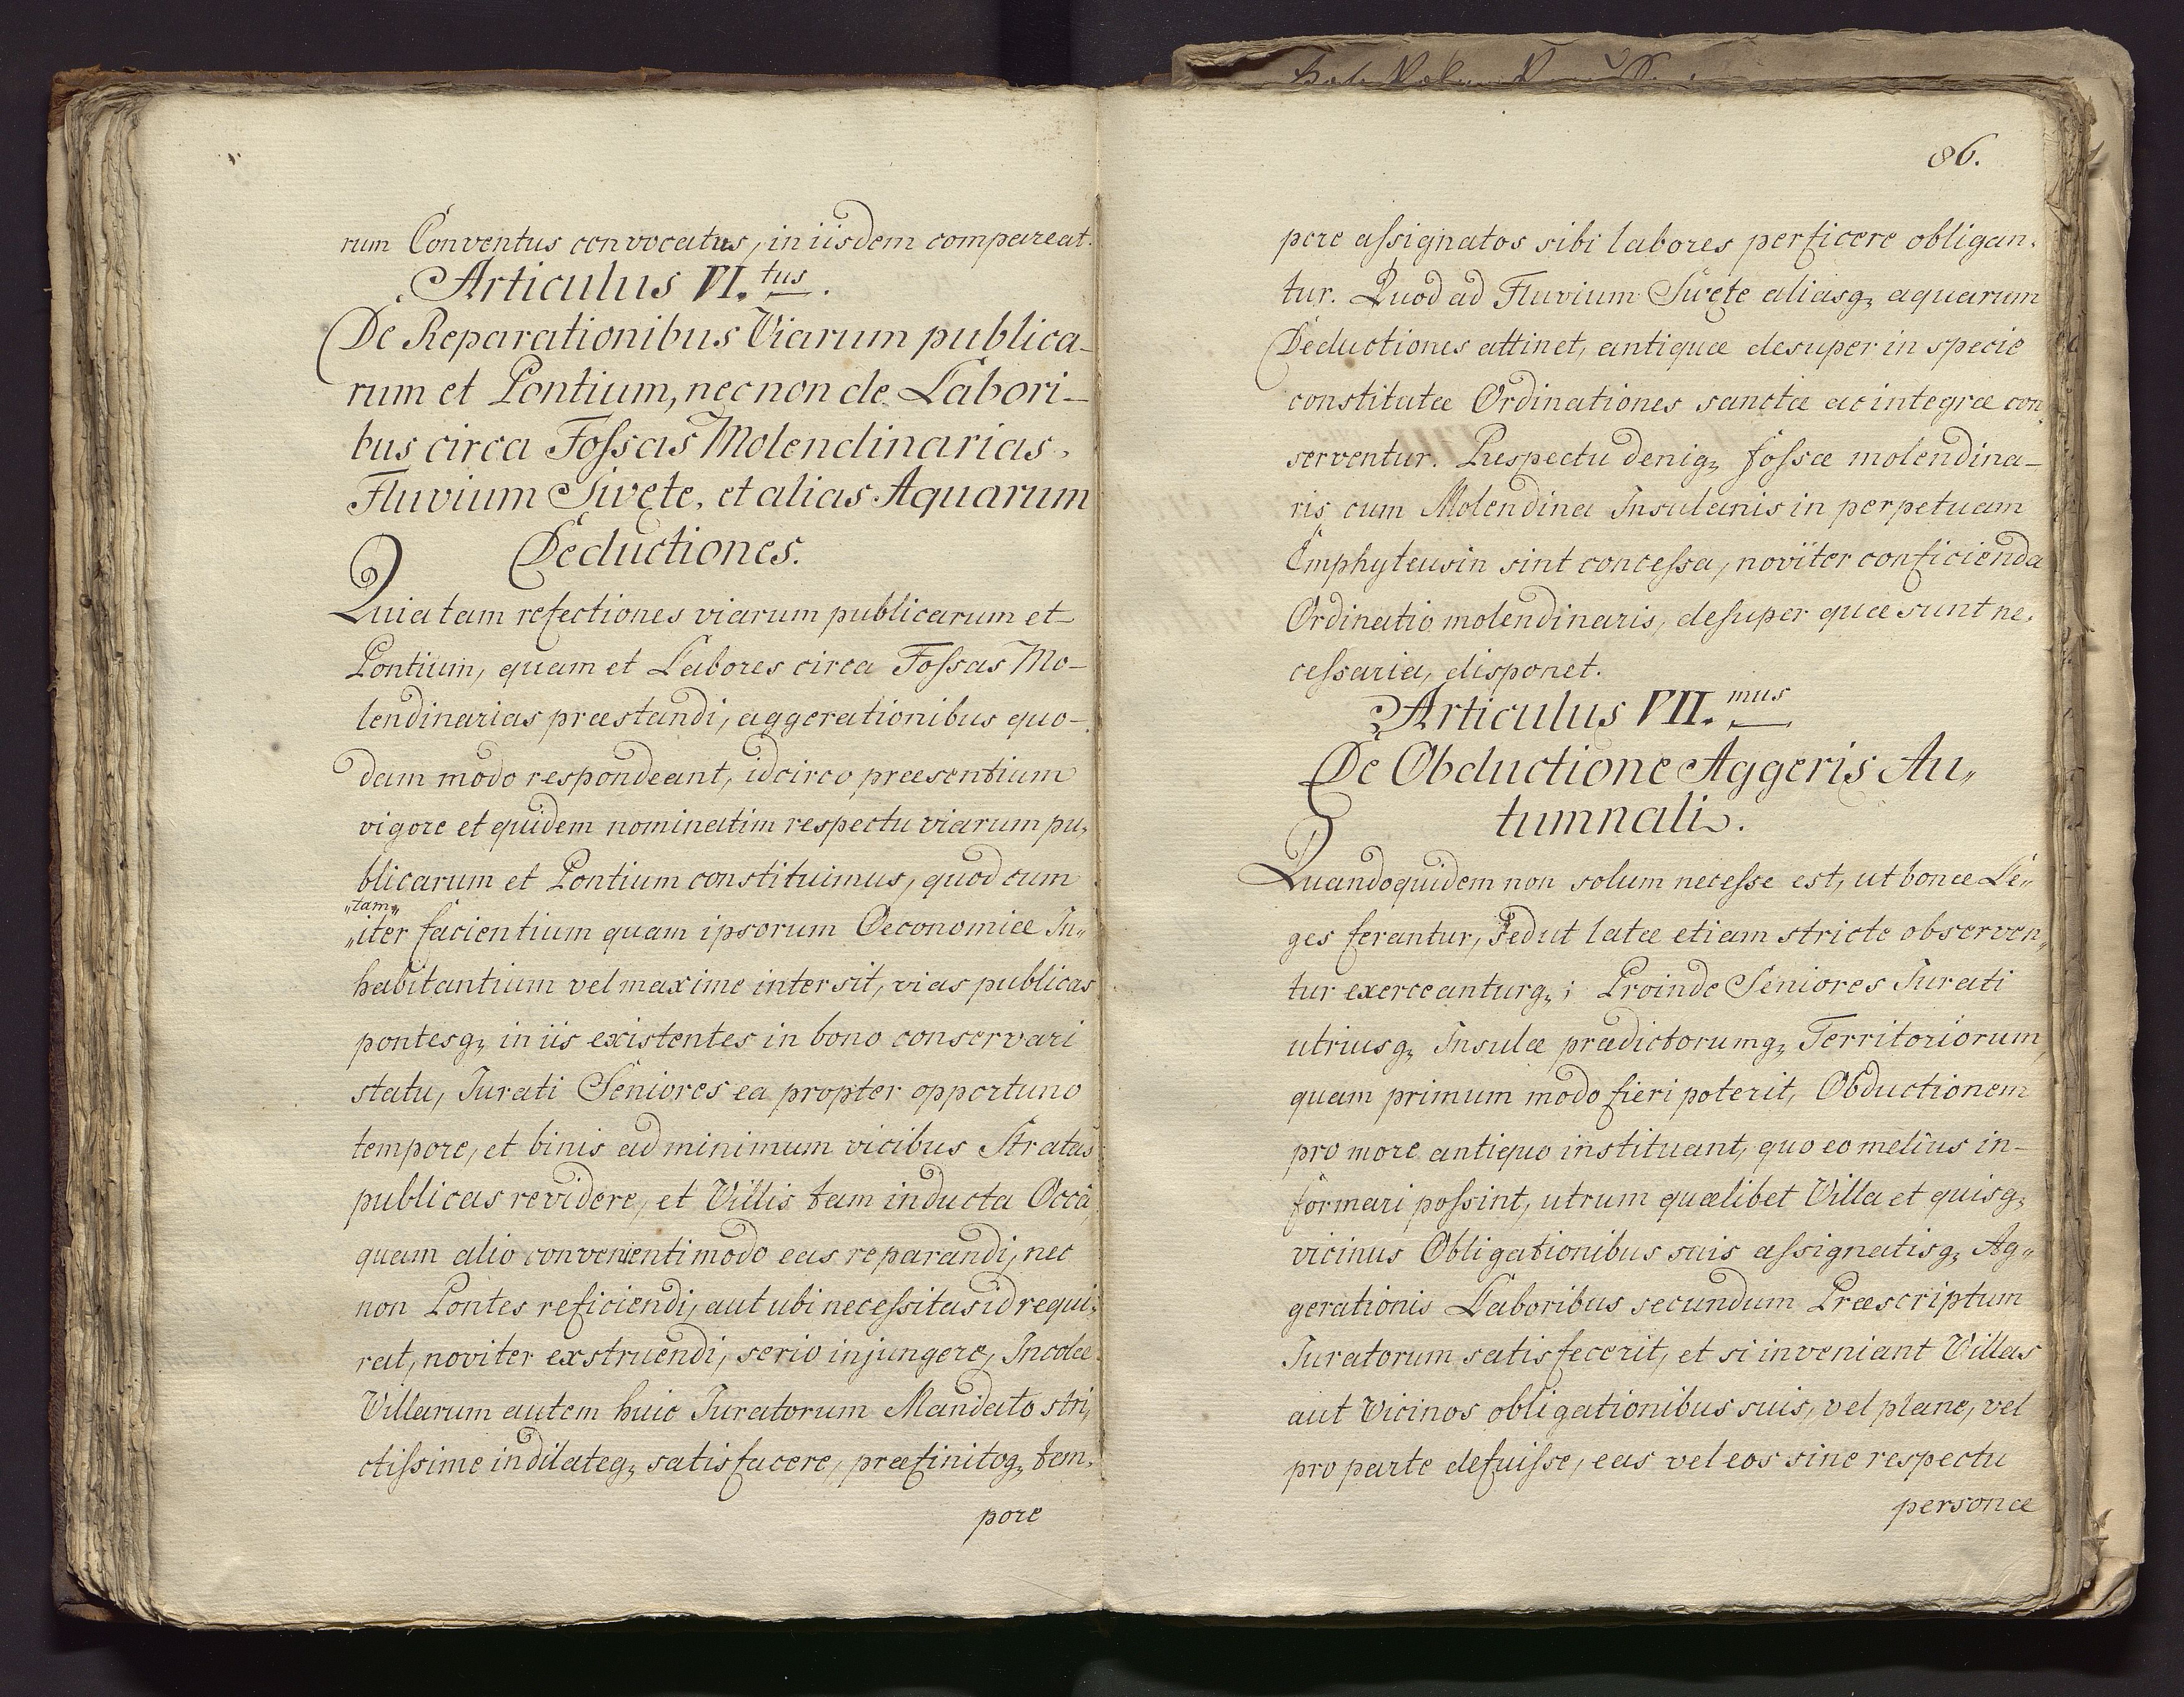 rum Conventus convocatus, in iisdem compareat.
Articulus VI.tus.
De Reparationibus Viarum publica-
rum et Pontium, nec non de Labori-
bus circa Foſsas Molendinarias,
Fluvium Sivete, et alias Aquarum
Deductiones.
Quia tam refectiones viarum publicarum et
Pontium, quam et Labores circa Foſsas Mo-
lendinarias præstandi, aggerationibus quo-
dam modo respondeant, idcirco præsentium
vigore et quidem nominatim respectu viarum pu,
blicarum et Pontium constituimus, quod cum
„tam„
„iter facientium quam ipsorum Oeconomiæ In„
habitantium vel maxime intersit, vias publicas
pontesq, in iis existentes in bono conservari
statu, Jurati Seniores ea propter opportuno
tempore, et binis ad minimum vicibus Stratas
publicas revidere, et Villis tam inducta Occâ,
quam alio convenienti modo eas reparandi, nec
non Pontes reficiendi, aut ubi neceſsitas id requi,
rat, noviter exstruendi, serio injungere, Incolæ
Villarum autem huic Juratorum Mandato stri,
ctiſsime indilateq, satisfacere, præfinitoq, tem,
pore
86.
pore aſsignatos sibi labores perficere obligan,
tur. Quod ad Fluvium Sivete aliasq, aquarum
Deductiones attinet, antiquæ desuper in specie
constitutæ Ordinationes sanctæ ac integræ con,
serventur. Respectu deniq, foſsæ molendina-
ris, cum Molendina Insulanis in perpetuam
Emphyteusin sint conceſsa, noviter conficienda
Ordinatio molendinaris, deſuper quæ sunt ne,
ceſsaria, disponet.
Articulus VII.mus
De Obductione Aggeris Au„
tumnali.
Quandoquidem non solum neceſse est, ut bonæ Le„
ges ferantur, sed ut latæ etiam stricte observen„
tur exerceanturq,; Proinde Seniores Jurati
utriusq, Insulæ prædictorumq, Territoriorum,
quam primum modo fieri poterit, Obductionem
pro more antiquo instituant, quo eo melius in-
formari poſsint, utrum quælibet Villa et quisq,
vicinus Obligationibus suis aſsignatisq, Ag„
gerationis Laboribus secundum Præscriptum
Juratorum satisfecerit, et si inveniant Villas
aut Vicinos obligationibus suis, vel plane, vel
pro parte defuiſse, eas vel eos sine respectu
personæ